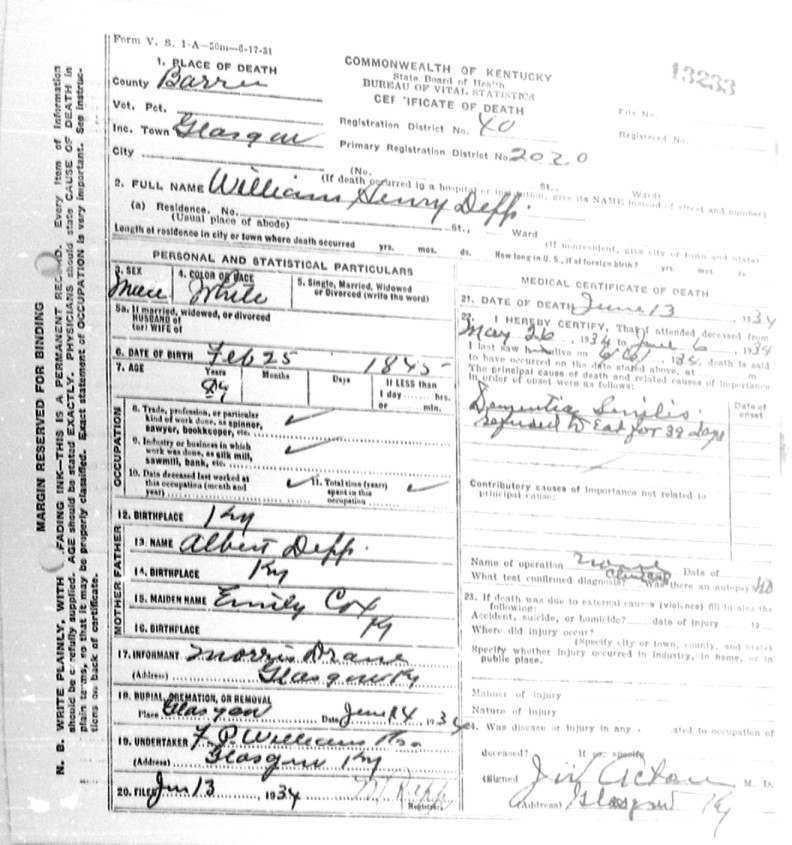 Form V. S. 1-A—50m—6-17-31
13233
COMMONWEALTH OF KENTUCKY
State Board of Health
BUREAU OF VITAL STATISTICS
CERTIFICATE OF DEATH
1. PLACE OF DEATH
County Barren
Vot. Pct.
Inc. Town Glasgow
City
Registration District No. 40
Primary Registration District No. 2020
File No.
Registered No.
(No. St., Ward)
(If death occurred in a hospital or institution, give its NAME instead of street and number)
2. FULL NAME William Henry Depp
(a) Residence. No. St., Ward
(Usual place of abode) (If nonresident, give city or town and State)
Length of residence in city or town where death occurred yrs. mos. ds. How long in U. S., if of foreign birth? yrs. mos. ds.
PERSONAL AND STATISTICAL PARTICULARS
3. SEX Male
4. COLOR OR RACE White
5. Single, Married, Widowed or Divorced (write the word)
5a. If married, widowed, or divorced
HUSBAND of
(or) WIFE of
6. DATE OF BIRTH Feb 25 1845
7. AGE Years 89 Months Days If LESS than
1 day hrs.
or min.
OCCUPATION
8. Trade, profession, or particular
kind of work done, as spinner,
sawyer, bookkeeper, etc.
9. Industry or business in which
work was done, as silk mill,
sawmill, bank, etc.
10. Date deceased last worked at
this occupation (month and
year)
11. Total time (years)
spent in this
occupation
12. BIRTHPLACE Ky
FATHER
13. NAME Albert Depp
14. BIRTHPLACE Ky
MOTHER
15. MAIDEN NAME Emily Cox
16. BIRTHPLACE Ky
17. INFORMANT Morris Drane
(Address) Glasgow Ky
18. BURIAL, CREMATION, OR REMOVAL
Place Glasgow Date June 14, 1934
19. UNDERTAKER F. P. Williams
(Address) Glasgow Ky
20. FILED Jun 13, 1934 Depp
Registrar
MEDICAL CERTIFICATE OF DEATH
21. DATE OF DEATH June 13, 1934
22. I HEREBY CERTIFY, That I attended deceased from
May 26, 1934 to June 6, 1934
I last saw h alive on , death is said
to have occurred on the date stated above, at m.
The principal cause of death and related causes of importance
in order of onset were as follows:
Date of onset
Dementia Senilis
refused to Eat for 39 days
Contributory causes of importance not related to
principal cause:
Name of operation none Date of
What test confirmed diagnosis? Clinical Was there an autopsy? No
23. If death was due to external causes (violence) fill in also the
following:
Accident, suicide, or homicide? date of injury 19
Where did injury occur?
(Specify city or town, county, and State)
Specify whether injury occurred in industry, in home, or in
public place.
Manner of injury
Nature of injury
24. Was disease or injury in any related to occupation of
deceased? If so, specify
(Signed Acton M. D.
(Address) Glasgow Ky
MARGIN RESERVED FOR BINDING
N. B. WRITE PLAINLY, WITH FADING INK—THIS IS A PERMANENT RECORD. Every item of information
should be carefully supplied. AGE should be stated EXACTLY. PHYSICIANS should state CAUSE OF DEATH in
plain terms, so that it may be properly classified. Exact statement of OCCUPATION is very important. See instruc-
tions on back of certificate.